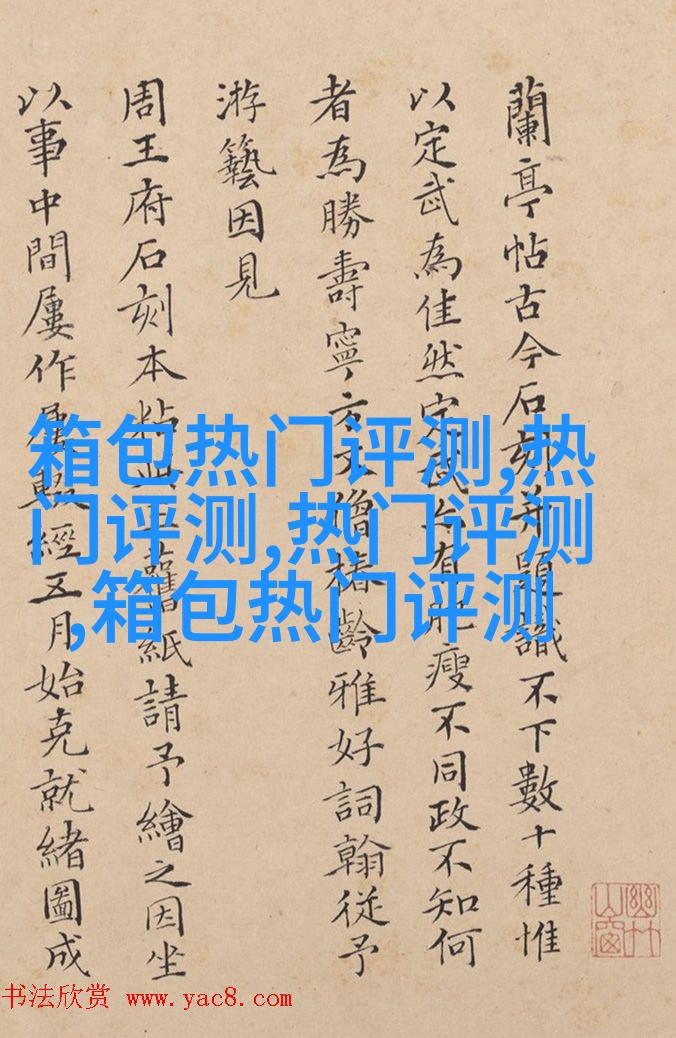 蘭亭帖古今石刻并題識不下數十種惟
以定武為佳然定武亦有肥瘦不同政不知何
者為勝壽寧方丈僧椿齡雅好詞翰從予
游藝因見
周王府石刻本粘舊紙請予繪之因坐
以事中間屢作屢輟經五月始克就緒圖成
箱包热门评测,热
门评测,热门评测
,箱包热门评测
幽竹山窗
书法欣赏 www.yac8.com